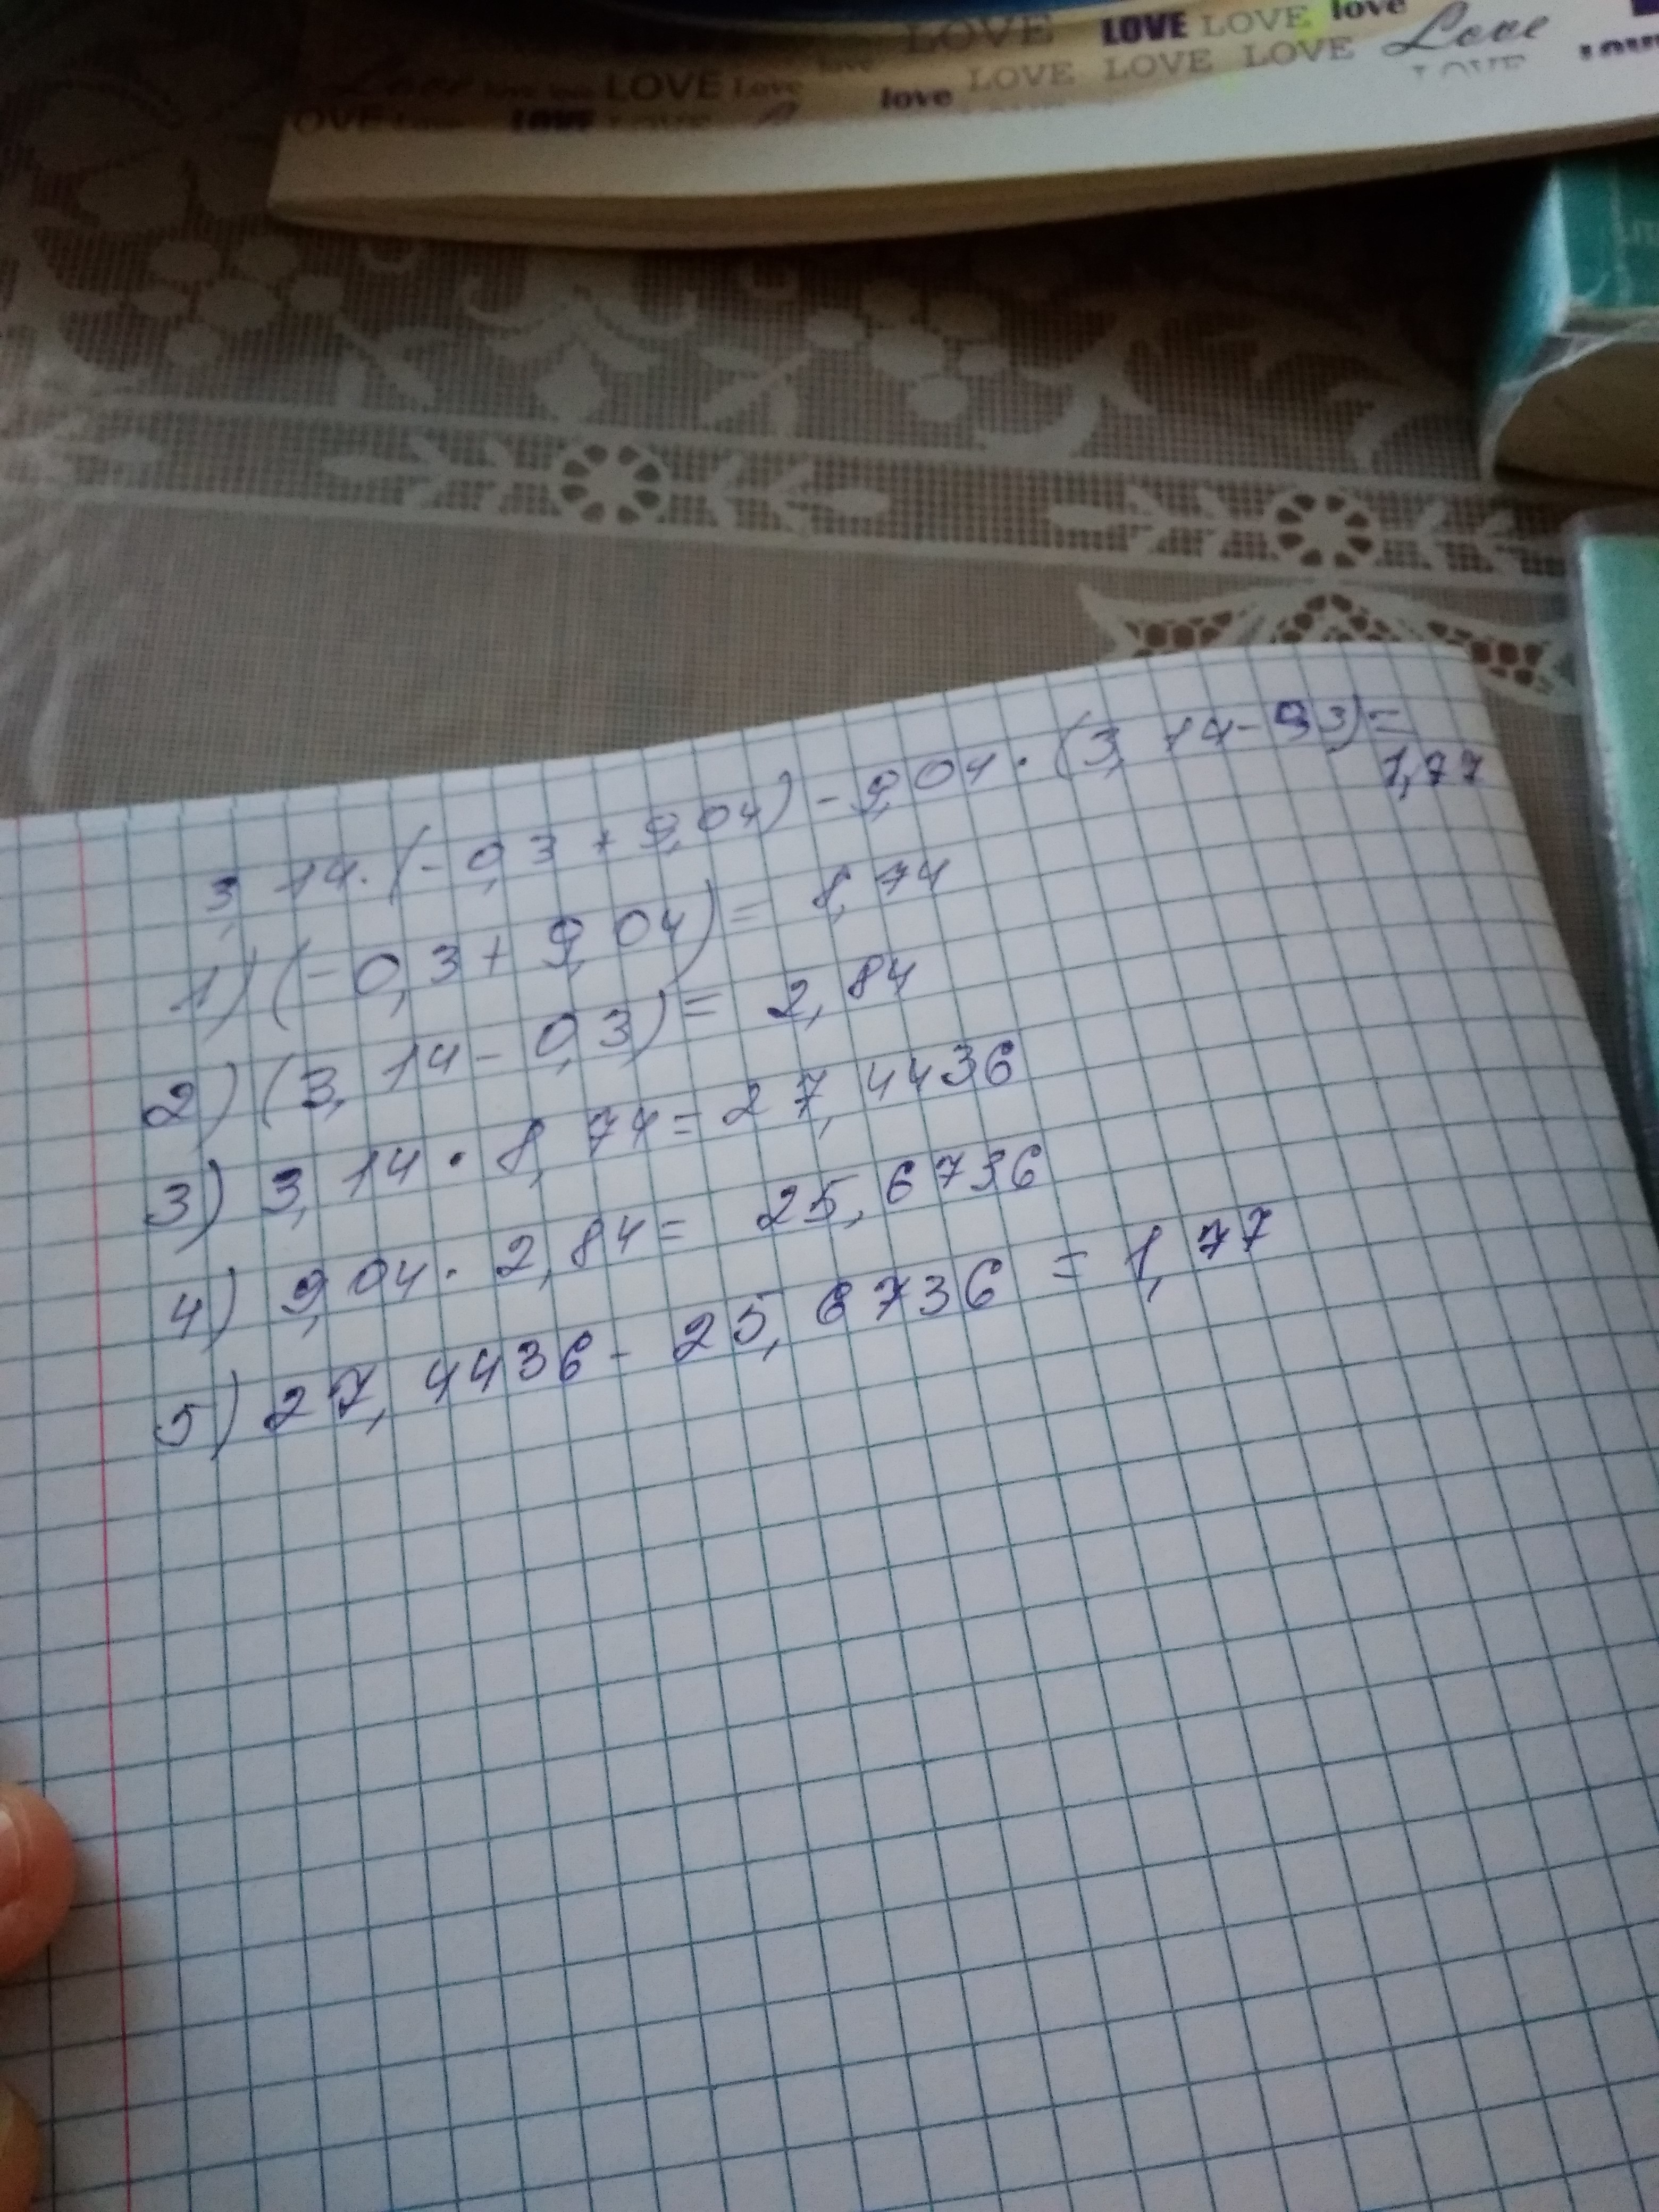 LOVE LOVE LOVE love Love
love LOVE Love love LOVE LOVE LOVE LOVE
LOVE LOVE love
3,14·(-0,3+9,04)-9,04·(3,14-0,3)=
1,77
1) (-0,3+9,04)= 8,74
2) (3,14-0,3)= 2,84
3) 3,14·8,74=27,4436
4) 9,04·2,84= 25,6736
5) 27,4436-25,6736=1,77